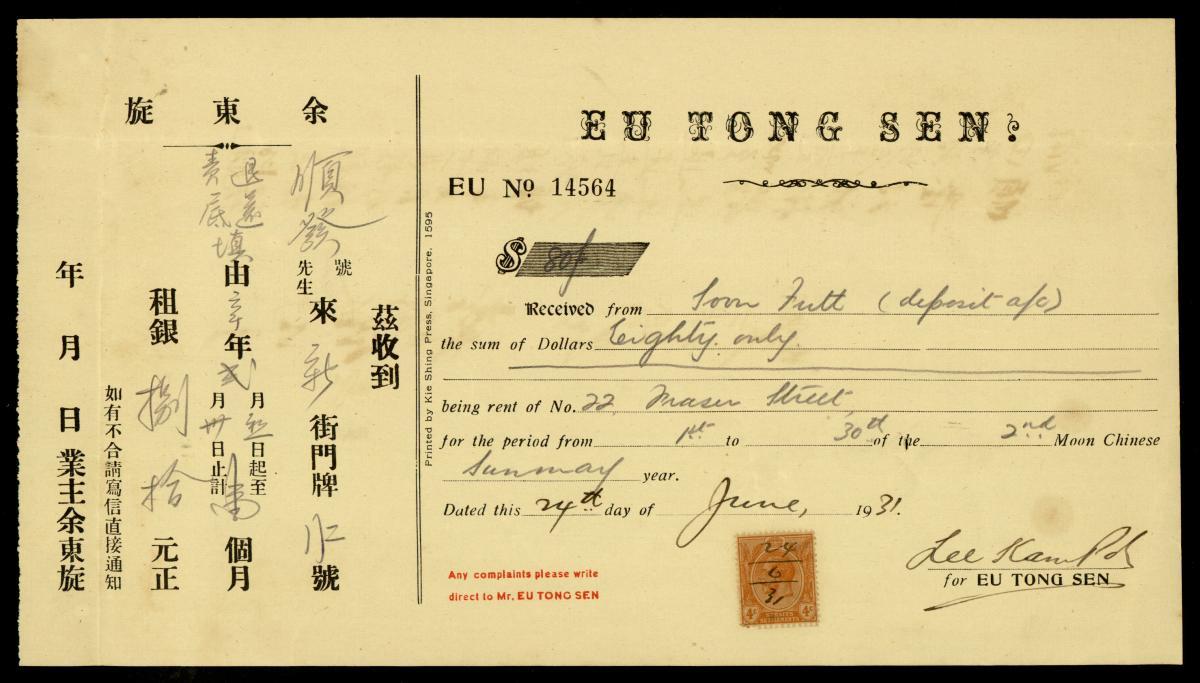 余東旋
茲收到
順發
號
先生
來
新
街門牌
號
退還
責底填
由辛年弍月
日起至
月卅日止計
個月
租銀捌拾元正
如有不合請寫信直接通知
年月日業主余東旋
Printed by Kie Shing Press, Singapore, 1595
EU TONG SEN:
EU No 14564
$ 80/
Received from Soon Futt (deposit a/c)
the sum of Dollars Eighty only
being rent of No. 22 Fraser Street
for the period from 1st to 30th of the 2nd Moon Chinese
Sunmay year.
Dated this 24th day of June, 1931.
Any complaints please write
direct to Mr. EU TONG SEN
24
6
31
4c 4c
SETTLEMENTS
Lee Kam
for EU TONG SEN